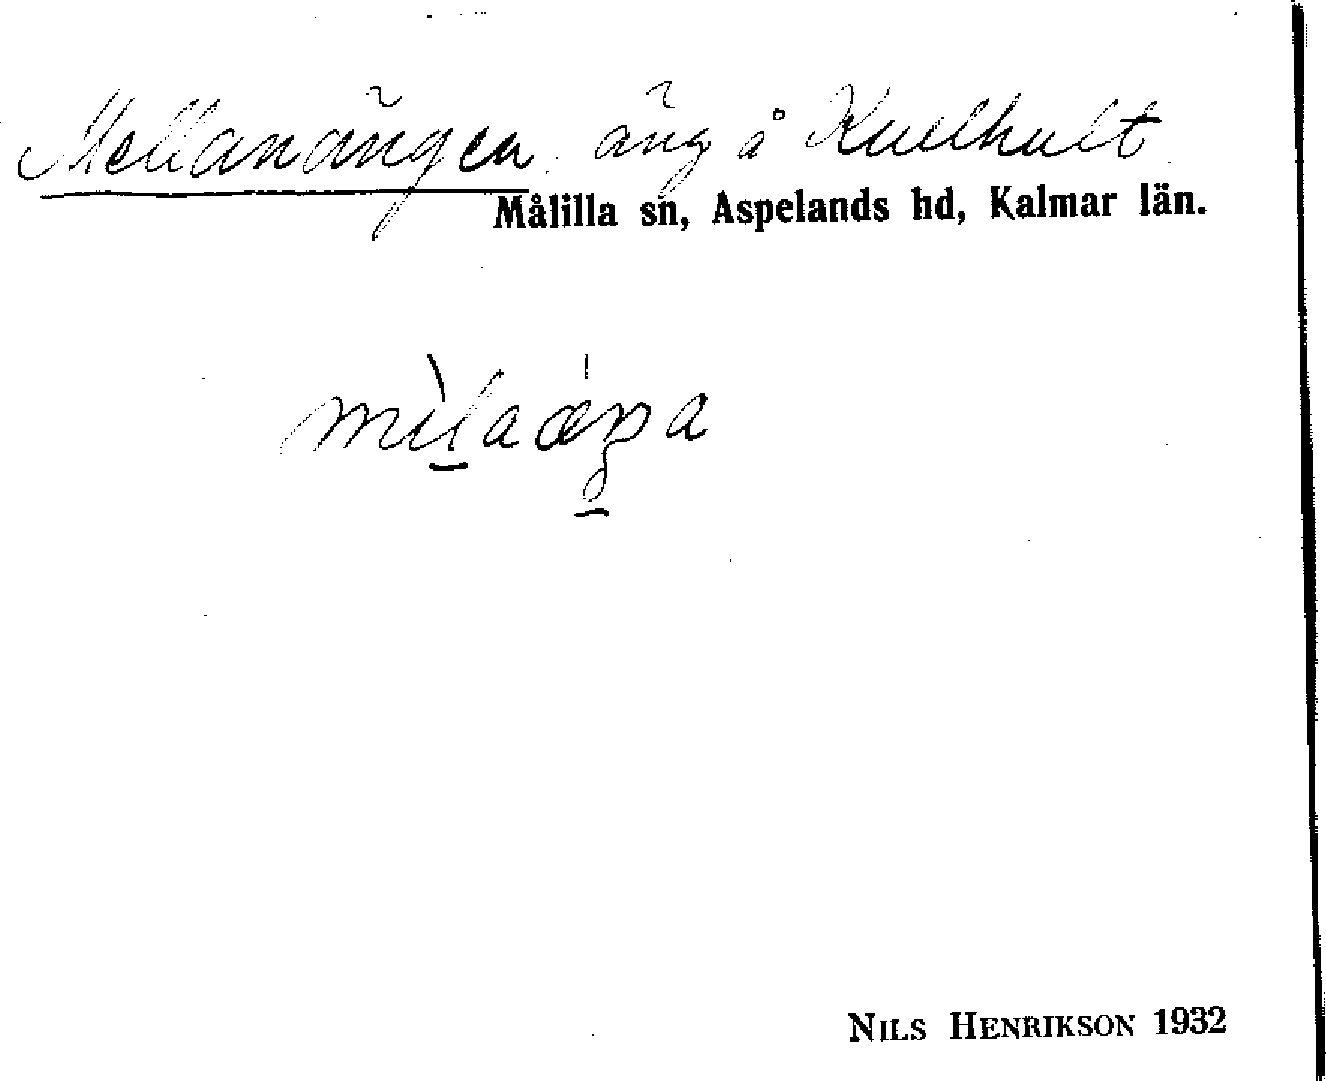 Mellanängen, äng å Kullhult
Målilla sn, Aspelands hd, Kalmar län.
NILS HENRIKSON 1932